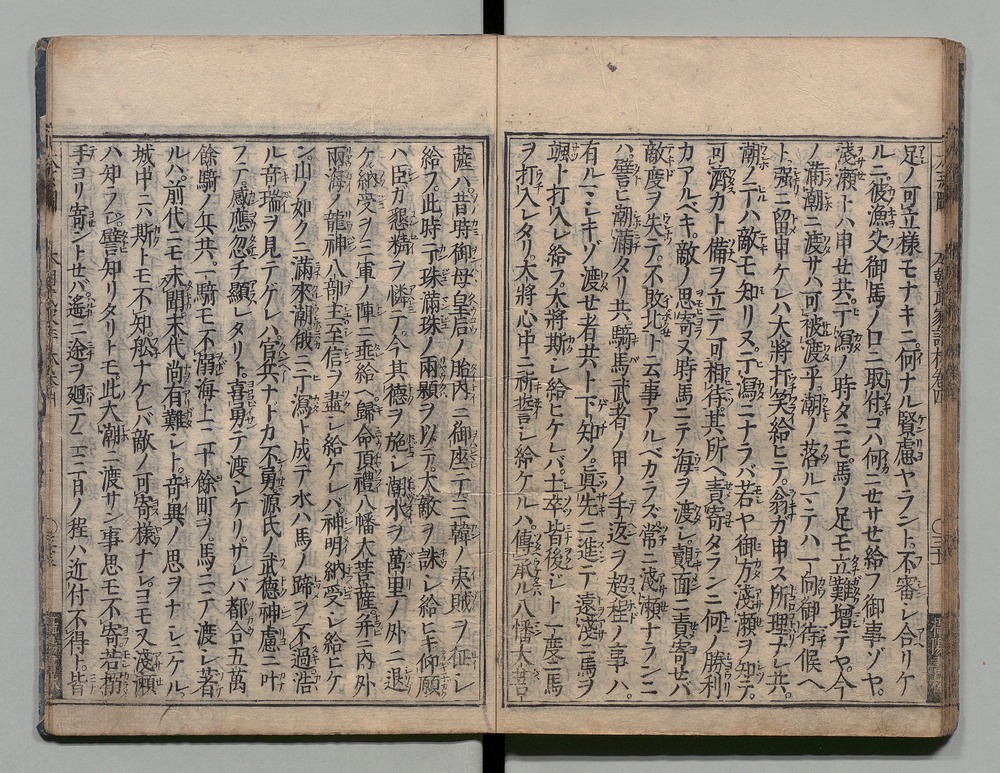 足ノ可立様モナキニ。何ナル賢慮ヤラント。不審シ合リケ
ルニ。彼漁父御馬ノ口ニ取付。コハ何ニセサセ給フ御事ゾヤ。
淺瀬トハ申セ共。干瀉ノ時タニモ馬ノ足モ立難。増テヤ今
ノ滿潮ニ渡サハ可被渡乎。潮ノ落ルヽニテハ一向御待候ヘ
ト。强ニ留申ケレハ。大將打笑給ヒテ。翁カ申ス所理ナレ共。
潮ノ干ハ敵モ知リヌ。干瀉ニナラバ若ヤ御方淺瀬ヲ知テ。
可濟カト備ヲ立テ可相待。其所ヘ責寄タランニ何ノ勝利
カアルベキ。敵ノ思寄ヌ時馬ニテ海ヲ渡シ。覿面ニ責寄セバ
敵度ヲ失テ。不敗北ト云事アルベカラス。常ニ淺瀬ナランニ
ハ。譬ヒ潮滿タリ共。騎馬ノ武者ノ甲ノ手返ヲ超程ノ事ハ。
有ルヽシキゾ渡セ者共ト下知シ。眞先ニ進ミテ遠淺ニ馬ヲ
颯ト打入レ給フ。大將斯シ給ヒケレバ。士卒皆後レシト一度ニ馬
ヲ打入レタリ。大將心中ニ祈誓シ給ケルハ。傳承ル八幡大菩
薩ハ昔時御母皇后ノ胎内ニ御座テ。三韓ノ夷賊ヲ征シ
給フ。此時干珠滿珠ノ兩顆ヲ以テ。大敵ヲ誅シ給ヒキ。仰願
ハ臣カ懇精ヲ憐テ。今其德ヲ施シ。潮水ヲ萬里ノ外ニ退
ケ。納受ヲ三軍ノ陣ニ垂給ヘ。歸命頂禮八幡大菩薩。幷ニ内外
兩海ノ龍神八部ト。至信ヲ盡シ給ケレバ。神明納受シ給ヒケ
ン。山ノ如クニ滿來潮。俄ニ干瀉ト成テ。水ハ馬ノ蹄ヲ不過。浩
ル竒瑞ヲ見テゲレハ。官兵ナトカ不勇。源氏ノ武德神慮ニ叶
フテ。感應忽チ顯レタリト。喜勇テ渡シケリ。サレバ都合五萬
餘騎ノ兵共。一騎モ不溺海上二十餘町ヲ。馬ニテ渡シ著
ルハ。前代ニモ未聞末代尚有難シト。竒異ノ思ヲナシニケル。
城中ニハ斯トモ不知。舩ナケレバ敵ノ可寄様ナシ。ヨモ又淺瀬
ハ知ラジ。譬知リタリトモ此大潮ニ渡サン事思モ不寄。若搦
手ヨリ寄ントセバ。遙ニ途ヲ廻テ一二日ノ程ハ近付不得ト。皆